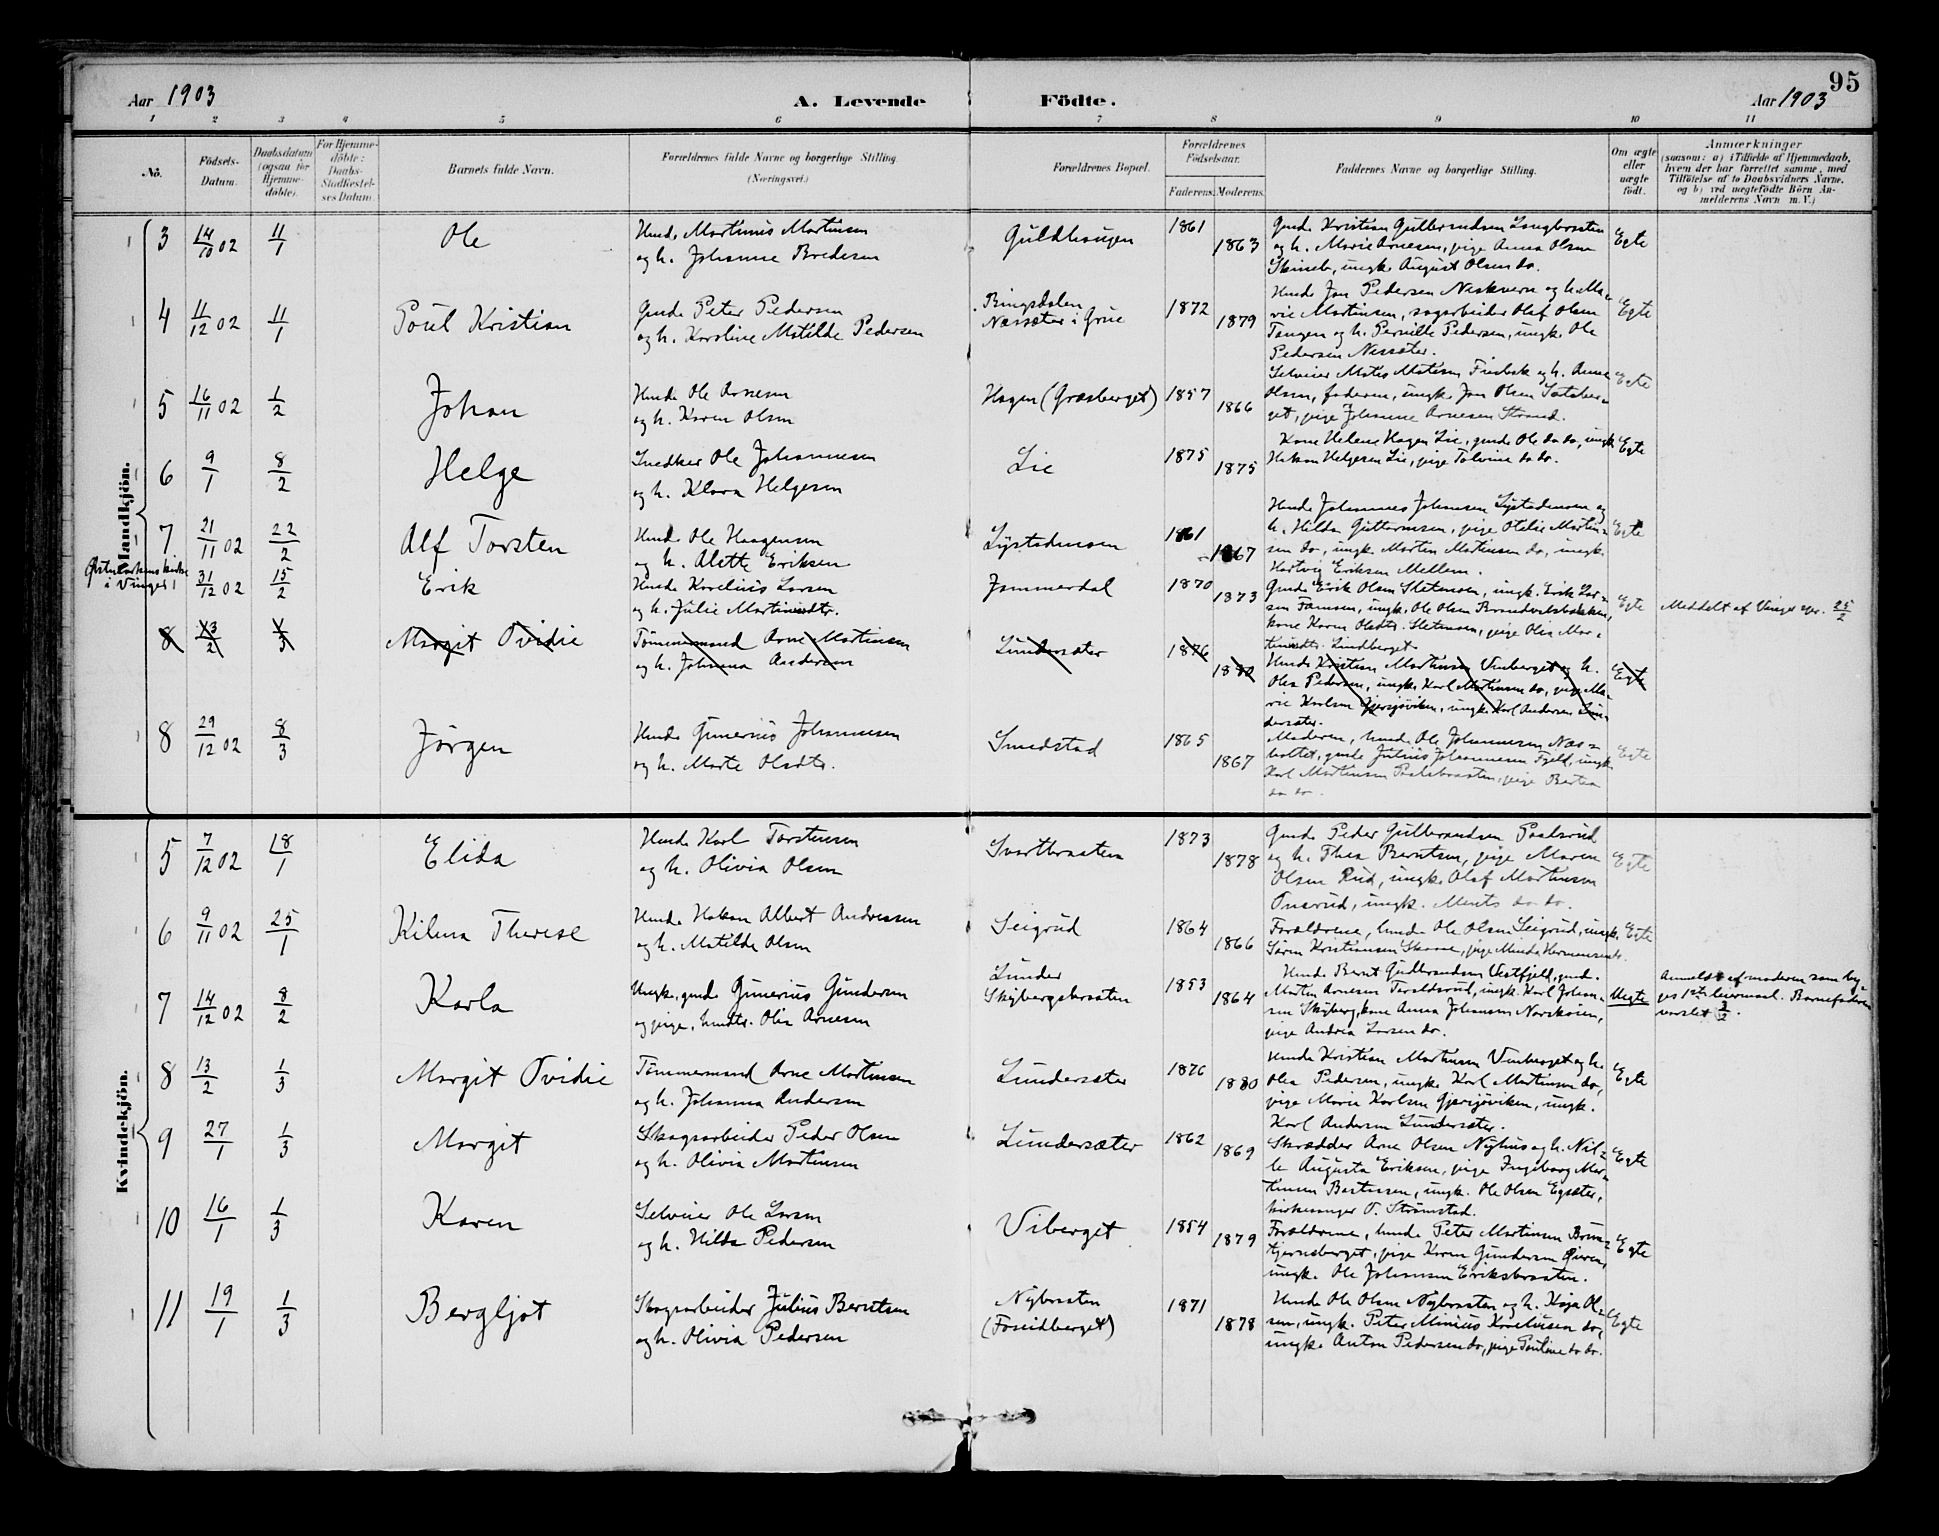 95
Aar 1903
A. Levende Födte.
Aar 1903
1 2 3 4 5 6 7 8 9 10 11
No.
Födsels-
Datum.
Daabsdatum
(ogsaa for
Hjemme-
döbte).
For Hjemme-
döbte:
Daabs-
Stadfæstel-
ses Datum.
Barnets fulde Navn.
Forældrenes fulde Navne og borgerlige Stilling.
(Næringsvei.)
Forældrenes Bopæl.
Forældrenes
Födselsaar.
Faderens. Moderens.
Faddernes Navne og borgerlige Stilling.
Om ægte
eller
uægte
födt.
Anmærkninger
(saasom: a) i Tilfælde af Hjemmedaab,
hvem der har forrettet samme, med
Tilföielse af to Daabsvidners Navne,
og b) ved uægtefödte Börn An-
melderens Navn m. V.)
Mandkjön.
3 14/10 02 11/1 Ole
Husm. Martinus Martinsen
og h. Johanne Bredesen
Guldhaugen 1861 1863
Gmd. Kristian Gulbrandsen Langbraaten
og h. Marie Arnesen, pige Anna Olsen
ungk. August Olsen do.
Egte
4 11/12 02 11/1 Poul Kristian
Gmd. Peter Pedersen
og h. Karoline Matilde Pedersen
Ringsdalen
Næssæter i Grue
1872 1879
Jon Pedersen Neskvern og h. Ma-
rie Martinsen, sagarbeider Olaf Olsen
Tangen og h. Pernille Pedersen, ungk. Ole
Pedersen Nessæter.
Egte
5 16/11 02 1/2 Johan
Ole Arnesen
og h. Karen Olsen
Hagen (Græsberget) 1857 1866
Selveier Mates Matesen Finbak og h. Anne
Olsen, faderen, ungk. Jon Olsen
get, pige Johanne Arnesen Strand.
Egte
6 9/1 8/2 Helge
Snedker Ole Johannesen
og h. Klara Helgesen
Lie 1875 1875
Kone Helene Hagen Lie, gmd. Ole do do, ungk.
Hakon Helgesen Lie, pige Tolvine do do.
Egte
7 21/11 02 22/2 Alf Torsten
Ole Haagensen
og h. Alette Eriksen
Lystadmoen 1861 1867
Johannes Johansen Lystadmoen og
h. Hilda Guttormsen, pige Otilie Martin-
sen do, ungk. Morten Martinsen do, ungk.
Hartvig Eriksen Mellem.
Egte
i Vinger
31/12 02 15/2 Erik
Karelius Larsen
og h. Julie Martinsdtr.
Jammerdal 1870 1873
Gmd. Erik Olsen Sletmoen, ungk. Erik Lar-
sen ungk. Ole Olsen Brandvalsbakken,
kone Karen Olsdtr. Sletmoen, pige Olia Mar-
tinsdtr. Lindberget
Egte
Meddelt af Vinger spr. 25/2
8 13/2 1/3 Margit Ovidie
Tömmermand Arne Martinsen
og h. Johanna Andersen
Lundersæter 1876 1880
Kristian Martinsen Vinberget og h.
Olea Pedersen, ungk. Karl Martinsen do, pige Ma-
rie Karlsen Gjersjöviken, ungk. Karl Andersen Lun-
dersæter.
Egte
8 29/12 02 8/3 Jörgen
Gunerius Johannesen
og h. Marte Olsdtr.
Smedstad 1865 1867
Moderen, Ole Johannesen Næs-
gmd. Julius Johannesen Fjeld, ungk.
Karl Martinsen pige Bertea
do do.
Egte
Kvindekjön.
5 7/12 02 18/1 Elida
Karl Torstensen
og h. Olivia Olsen
Svartbraaten 1873 1878
Gmd. Peder Gulbrandsen Paalsrud
og h. Thea Berntsen, pige Maren
Olsen Rud, ungk. Olaf Martinsen
ungk. do do.
Egte
6 9/11 02 25/1 Kilma Therese
Hakon Albert Andreassen
og h. Matilda Olsen
Seigrud 1864 1866
Forældrene, Ole Olsen Seigrud, ungk.
Sören Kristiansen pige Minda
Egte
7 14/12 02 8/2 Karla
Ungk., gmds. Gunerius Gundersen
og pige, Olia Arnesen
Lunder
Skybergsbraaten
1853 1864
Bernt Gudbrandsen Vestfjeld, gmd.
Martin Arnesen ungk. Karl Johan-
sen Skyberg, kone Anna Johansen
pige Andrea Larsen do.
Uegte
Anmeldt af moderen som
ges 1ste leiermaal. Barnefaderen
varslet 3/2.
8 13/2 1/3 Margit Ovidie
Tömmermand Arne Martinsen
og h. Johanna Andersen
Lundersæter 1876 1880
Kristian Martinsen Vinberget og h.
Olea Pedersen, ungk. Karl Martinsen do,
pige Marie Karlsen Gjersjöviken, ungk.
Karl Andersen Lundersæter.
Egte
9 27/1 1/3 Margit
Skogsarbeider Peder Olsen
og h. Olivia Martinsen
Lundersæter 1862 1869
Skrædder Arne Olsen Nyhus og h. Nil-
le Augusta Eriksen, pige Ingeborg Mar-
tinsen ungk. Ole Olsen Egsæter,
kirkesanger O. Strömstad.
Egte
10 16/1 1/3 Karen
Selveier Ole Larsen
og h. Hilda Pedersen
Viberget 1854 1879
Forældrene, Peter Martinsen Brun-
tjernsberget, pige Karen Gundersen
ungk. Ole Johansen Eriksbraaten.
Egte
11 19/1 1/3 Bergljot
Skogsarbeider Julius Berntsen
og h. Olivia Pedersen
Nybraaten
(Foseidberget)
1871 1878
Ole Olsen Nybraaten og h. Kaja Ol-
sen, ungk. Peter Minius Karelusen do,
ungk. Anton Pedersen do, pige Pauline do do.
Egte